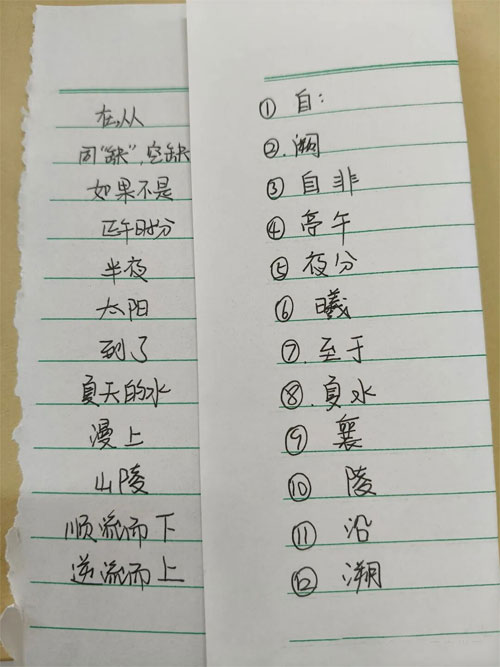 在,从
同“缺”,空缺
如果不是
正午时分
半夜
太阳
到了
夏天的水
漫上
山陵
顺流而下
逆流而上
① 自:
②.阙
③ 自非
④ 停午
⑤ 夜分
⑥ 曦
⑦.至于
⑧.夏水
⑨ 襄
⑩ 陵
⑪ 沿
⑫ 溯